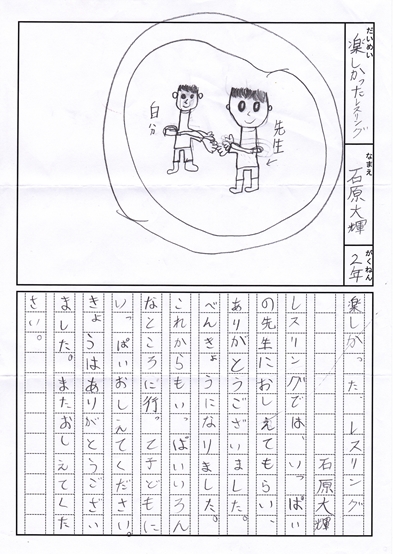 だいめい
楽しかったレスリング
なまえ
石原大輝
がくねん
2年
先生
自分
楽しかった、レスリング
石原大輝
レスリングでは、いっぱい
の先生におしえてもらい、
ありがとうございました。
べんきょうになりました。
これからもいっぱいいろん
なところに行って子どもに
いっぱいおしえてください。
きょうはありがとうござい
ました。またおしえてくだ
さい。